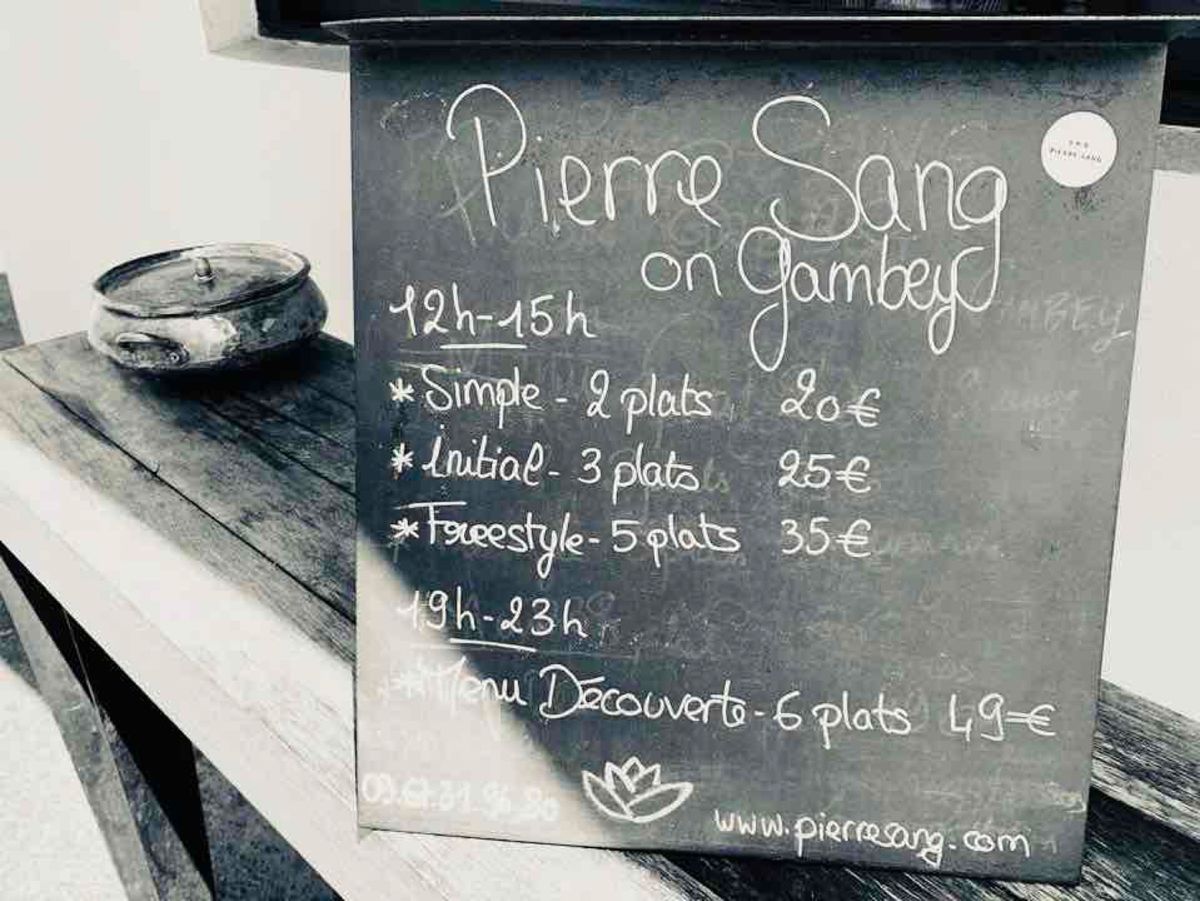 Pierre Sang
on Gambey
PIERRE SANG
12h-15h
* Simple - 2 plats 20€
* Initial - 3 plats 25€
* Freestyle - 5 plats 35€
19h-23h
* Menu Découverte - 6 plats 49€
www.pierresang.com